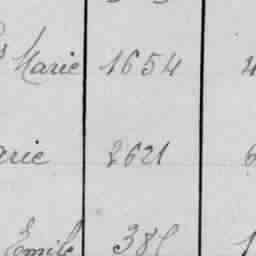 Marie 1654 4
arie 2621 6
Emile 38